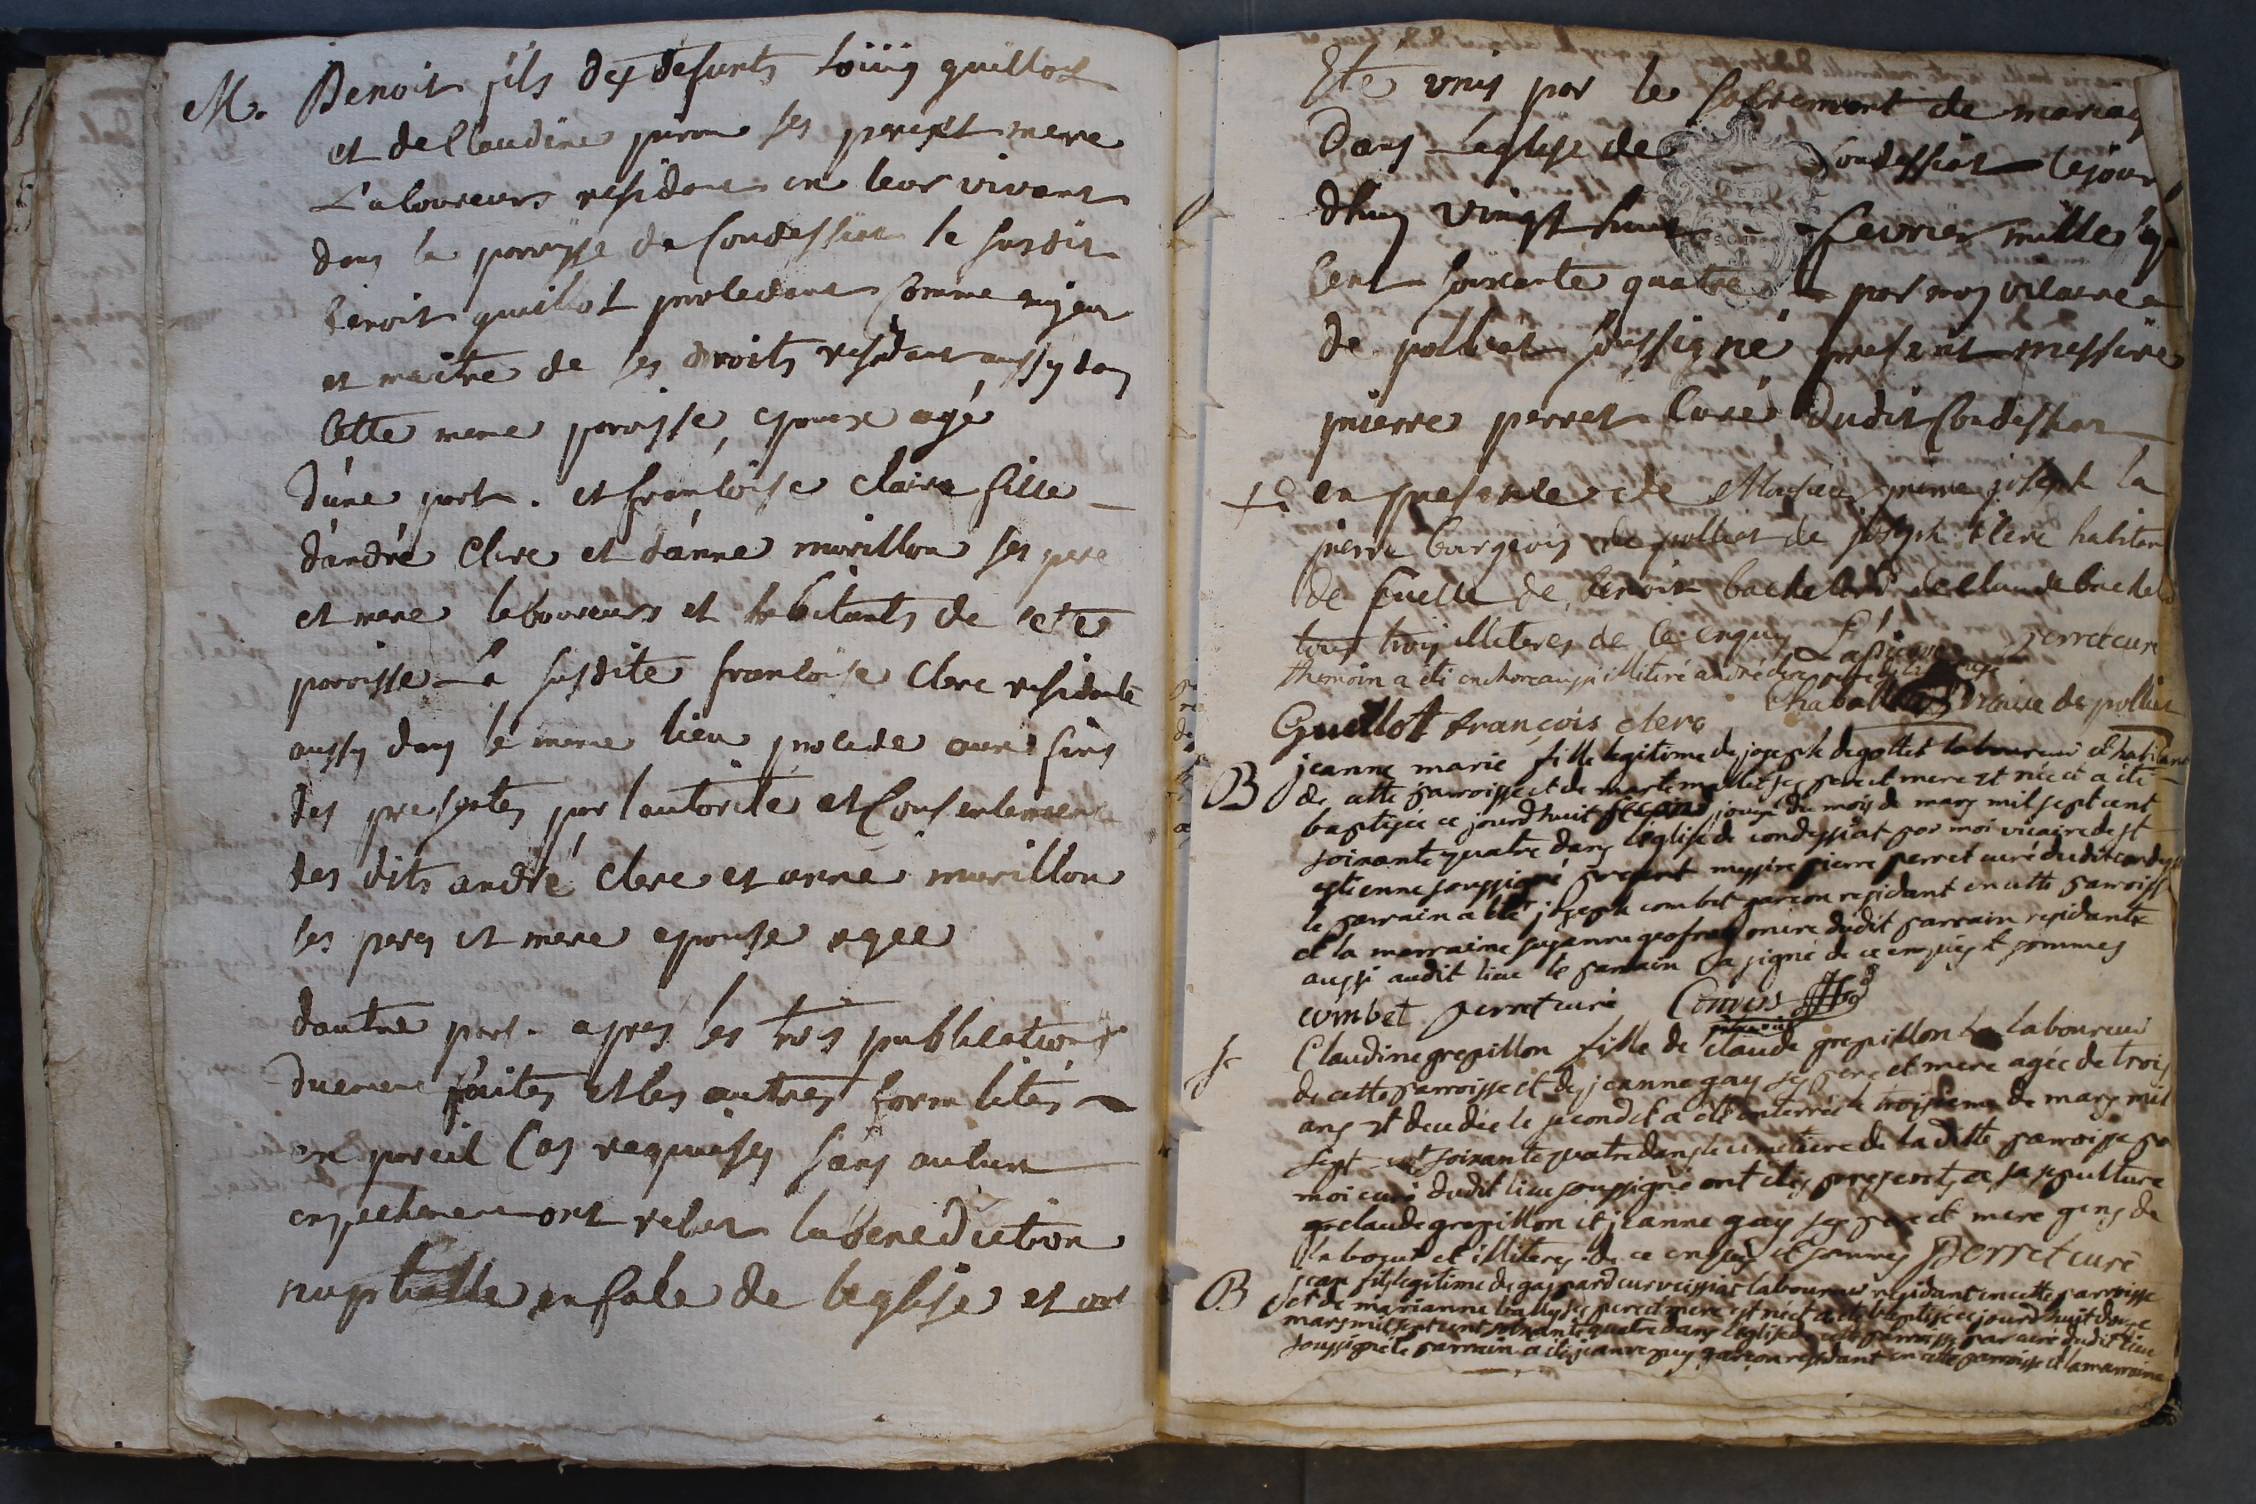 M. Benoit fils des defunts loüis guillot
et de Claudine piron ses pere et mere
Laboureurs residans en leur vivant
dans la paroisse de Condessiat le susdit
benoit guillot procedant comme majeur
et maitre de ses droits residant aussy dans
cette meme paroisse, epoux agé
d'une part. et françoise claire fille
d'andré Clerc et d'anne morillon ses pere
et mere laboureurs et habitants de cete
paroisse La susdite françoise Clerc residente
aussy dans le meme lieu procede aux fins
des presentes par l'autorité et Consentement
des dits andré Clerc et anne morillon
ses peres et mere epouse agee
dautre part. apres les trois publications
duement faites et les autres formlités
en pareil Cas requises sans aucun
empechement ont recut la benediction
nuptialle en face de leglise et ont
Eté unis par le sacrement de mariag
dans Leglise de Condessiat Cejour
dhuy vingt huit fevrier mille sept
Cent soixante quatre par moy vicaire
de polliat soussigné present messire
pierre perret Curé dudit Condessiat
en presence de Monsieur pierre joseph la
pierre bourgeois de polliat de joseph Clerc habitan
de de benoit bachellard de Claude bachelard
tous trois illiteres de ce enquis Lapierre perret curé
themoin a eté encore aussi illiteré andré clerc
Guillot françois clerc vicaire de polliat
B jeanne marie fille legitime de joseph degottet laboureur et habitant
de cette parroisse et de marie mallet ses pere et mere est née et a eté
baptisée ce jourdhuit second jour du mois de mars mil sept cent
soixante quatre dans l'eglise de condessiat par moi vicaire de st
estienne soussigné present messire pierre perret curé dudit condess
le parrain a eté joseph combet garcon residant en cette parroisse
et la marraine susanne geofray mere dudit parrain residante
aussi audit lieu le parrain a signé de ce enquis et sommés
combet perret curé
S Claudine grepillon fille de claude grepillon laboureur
de cette parroisse et de jeanne gay ses pere et mere agée de trois
ans est decedée le second et a eté enterrée le troisieme de mars mil
sept cent soixante quatre dans le cimetiere de la ditte parroisse pa
moi curé dudit lieu soussigné ont etés presents a sa sepulture
claude grepillon et jeanne gay ses pere et mere gens de
labour et illiteres de ce enquis et sommés Perret curé
B jean fils legitime de gaspard curveissiat laboureur residant en cette parroisse
et de marianne bally ses pere et mere est né et a eté baptisé ce jourdhuit douze
mars mil sept cent soixante quatre dans l'eglise de cette parroisse par curé dudit lieu
soussigné le parrain a eté jean repuy garcon residant en cette parroisse et la marraine